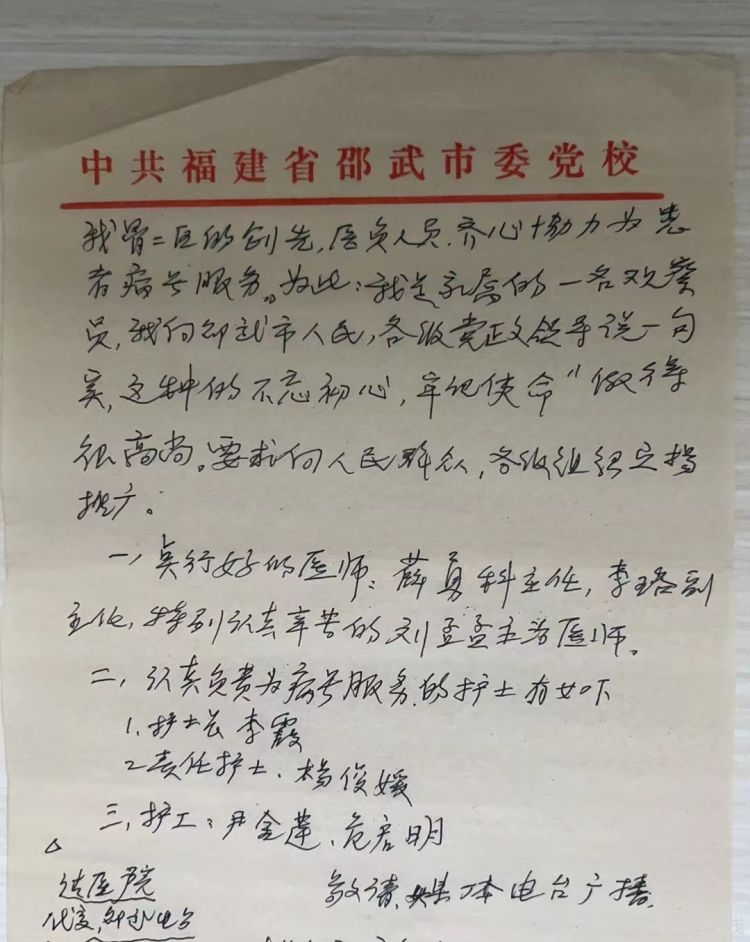 中共福建省邵武市委党校
我骨二区的创先,医负人员,齐心协力为患
者病号服务。为此:我是永高的一名观察
员,我向邵武市人民,各级党政领导说一句
实,这种的不忘初心,牢记使命"做得
很高尚。要求向人民群众,各级组织宣扬
推广。
一,真行好的医师:薛勇科主任,李珞副
主任,特别认真辛苦的刘孟孟主治医师。
二,认真负责为病号服务的护士有如下
1.护士长李霞
2责任护士.杨俊媛
三,护工:尹金莲、危启明
送医院
敬请媒体电台广播.